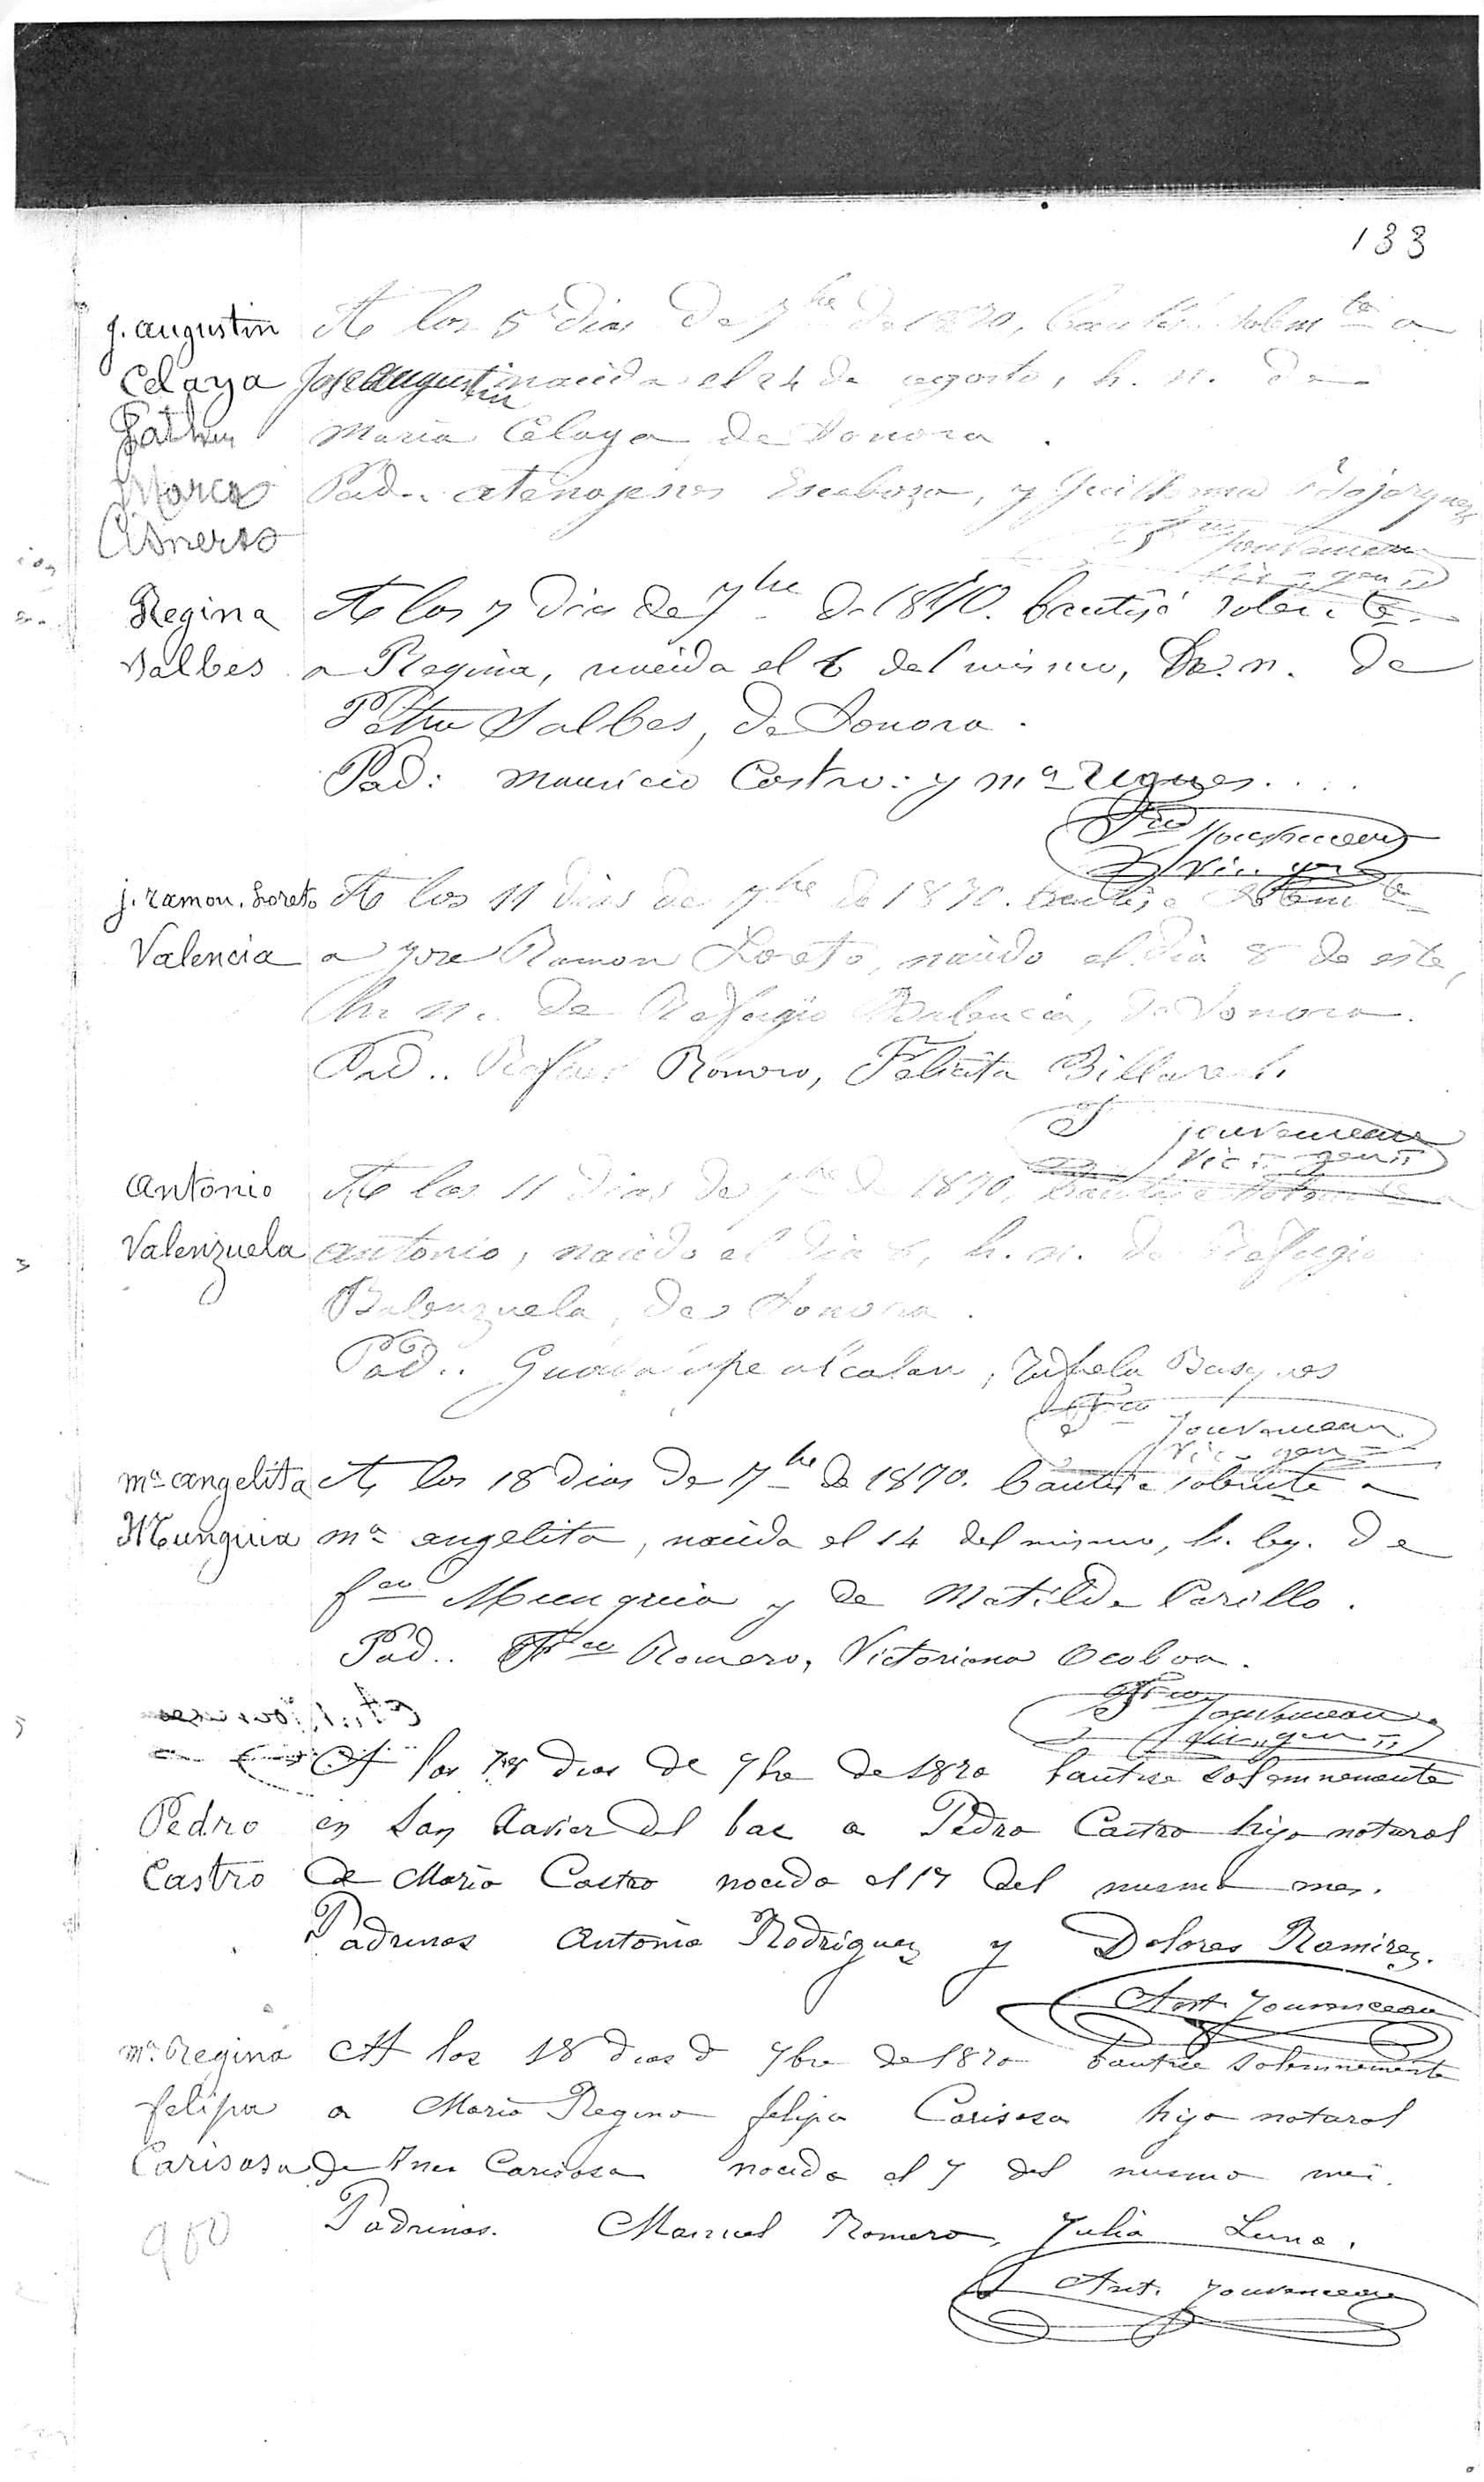 133
J. Augustin
Celaya
Father
Marcos
Cisneros
A los 5 dias de 7bre de 1870, bautisé solemte a
Jose Augustin nacido el 24 de agosto, h. n. de
Maria Celaya de Sonora.
Pad.. Atenojenes Escaboza, y Guillerma Bojorquez
Jouvenceau
Vic. gen
Regina
Valbes
A los 7 dias de 7bre de 1870. bautisé solemte
a Regina, nacida el 6 del mismo, h. n. de
Petra Valbes, de Sonora.
Pad: Mauricio Castro: y Ma
Fco Jouvenceau
Vic. gen
J. Ramon. Loreto
Valencia
A los 11 dias de 7bre de 1870. bautisé solemte
a Jose Ramon Loreto, nacido el dia 8 de este,
h. n. de Refugio Balencia, de Sonora.
Pad.. Rafael Romero, Felicita
F Jouvenceau
Vic. gen
Antonio
Valenzuela
A los 11 dias de 7bre de 1870, bautisé solemte a
Antonio, nacido el dia 6, h. n. de Refugio
Balenzuela, de Sonora.
Pad.. Guadalupe Alcalan, Rafela Basques
Fco Jouvenceau
Vic. gen
Ma Angelita
Munguia
A los 18 dias de 7bre de 1870. bautisé solemte a
Ma Angelita, nacida el 14 del mismo, h. leg. de
fco Munguia y de Matilde Carillo.
Pad.. Fco Romero, Victoriana Ocoboa.
Fco Jouvenceau
Vic. gen
Pedro
Castro
A los 18 dias de 7bre de 1870 bautise solemnemente
en San Xavier del bac a Pedro Castro hijo natural
de Maria Castro nacido el 17 del mismo mes.
Padrinos Antonio Rodriguez y Dolores Ramirez.
Ant. Jouvenceau
Ma. Regina
felipa
Carisosa
A los 18 dias d 7bre de 1870 bautise solemnemente
a Maria Regina felipa Carisosa hija natural
de Ines Carisosa nacida el 7 del mismo mes.
Padrinos. Manuel Romero, Julia Luna.
Ant. Jouvenceau
980